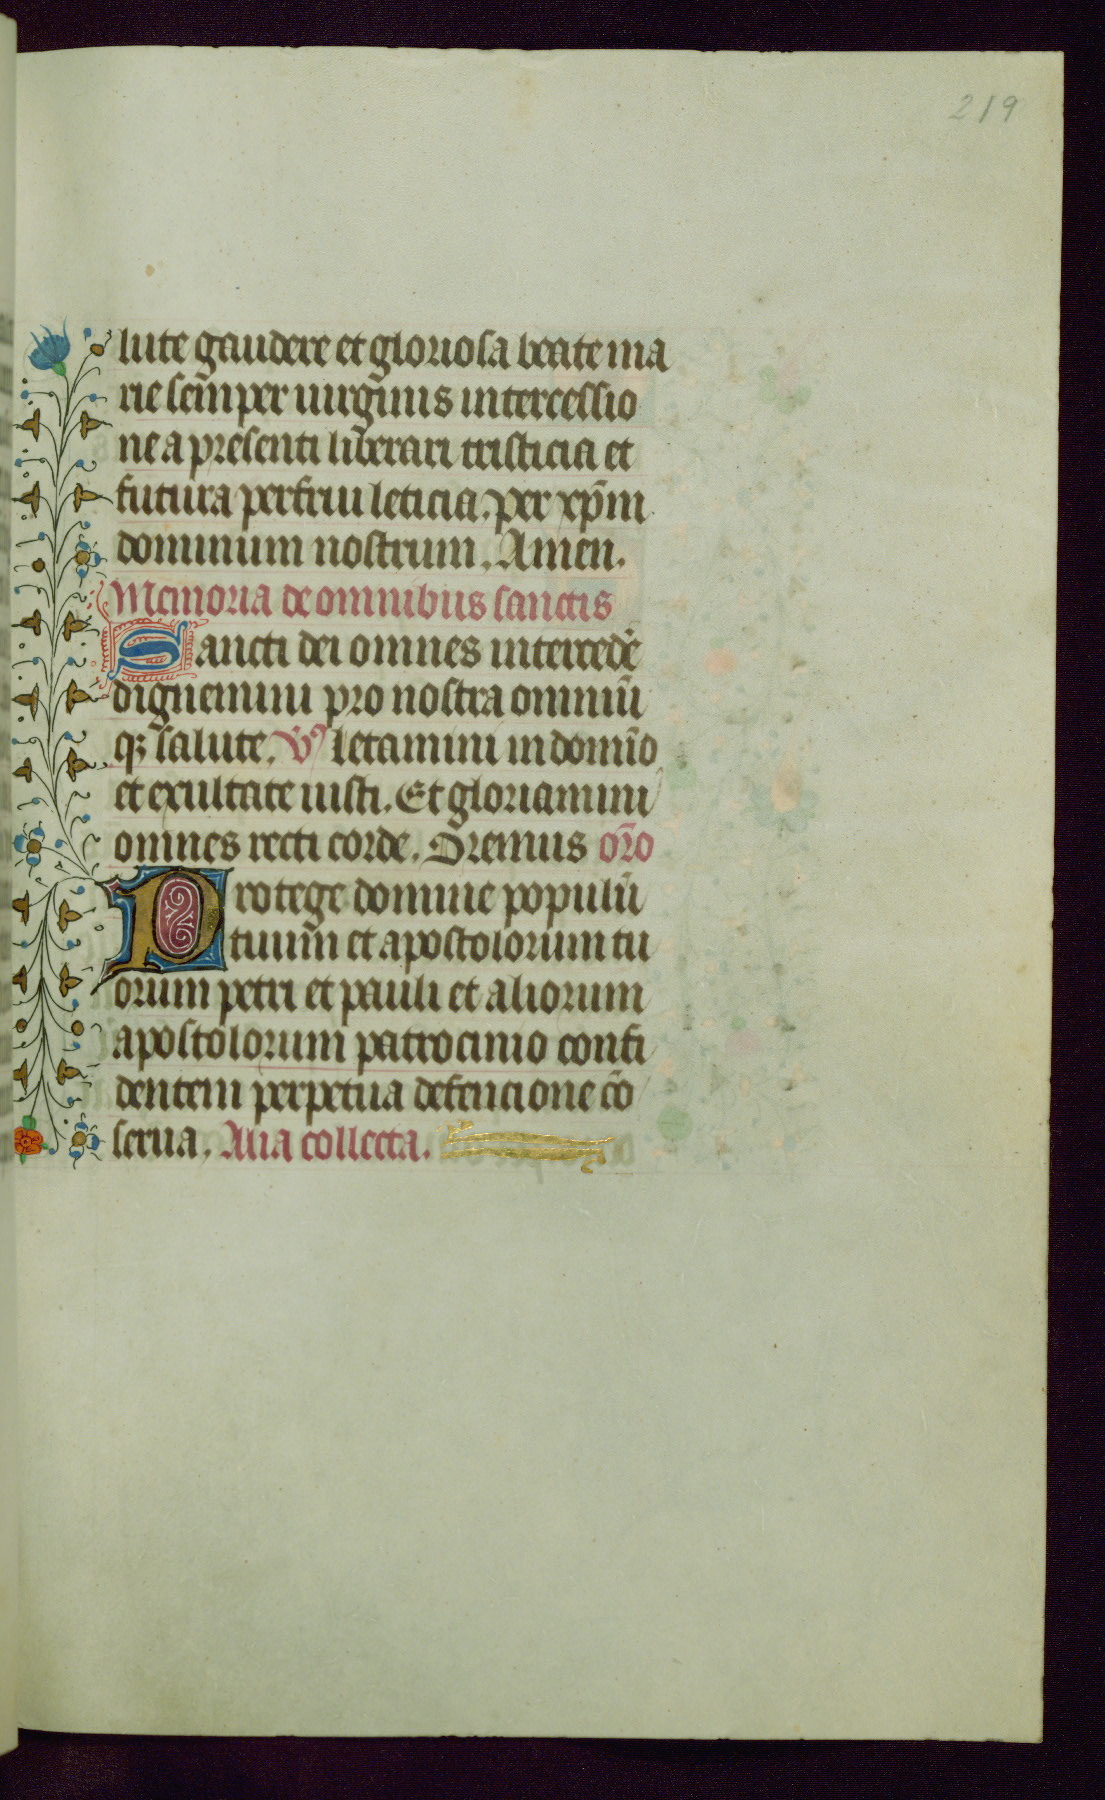 219
lute gaudere et gloriosa beate ma
rie semper uirginis intercessio
ne a presenti liberari tristicia et
futura perfrui leticia. per xp̄m
dominum nostrum. Amen.
Memoria de omnibus sanctis
Sancti dei omnes intercedē
dignemini pro nostra omniū
qꝫ salute. v̄ letamini in domīo
et exultate iusti. Et gloriamini
omnes recti corde. Oremus or̄o
Protege domine populū
tuum et apostolorum tu
orum petri et pauli et aliorum
apostolorum patrocinio confi
dentem perpetua defencione cō
serua. Alia collecta.